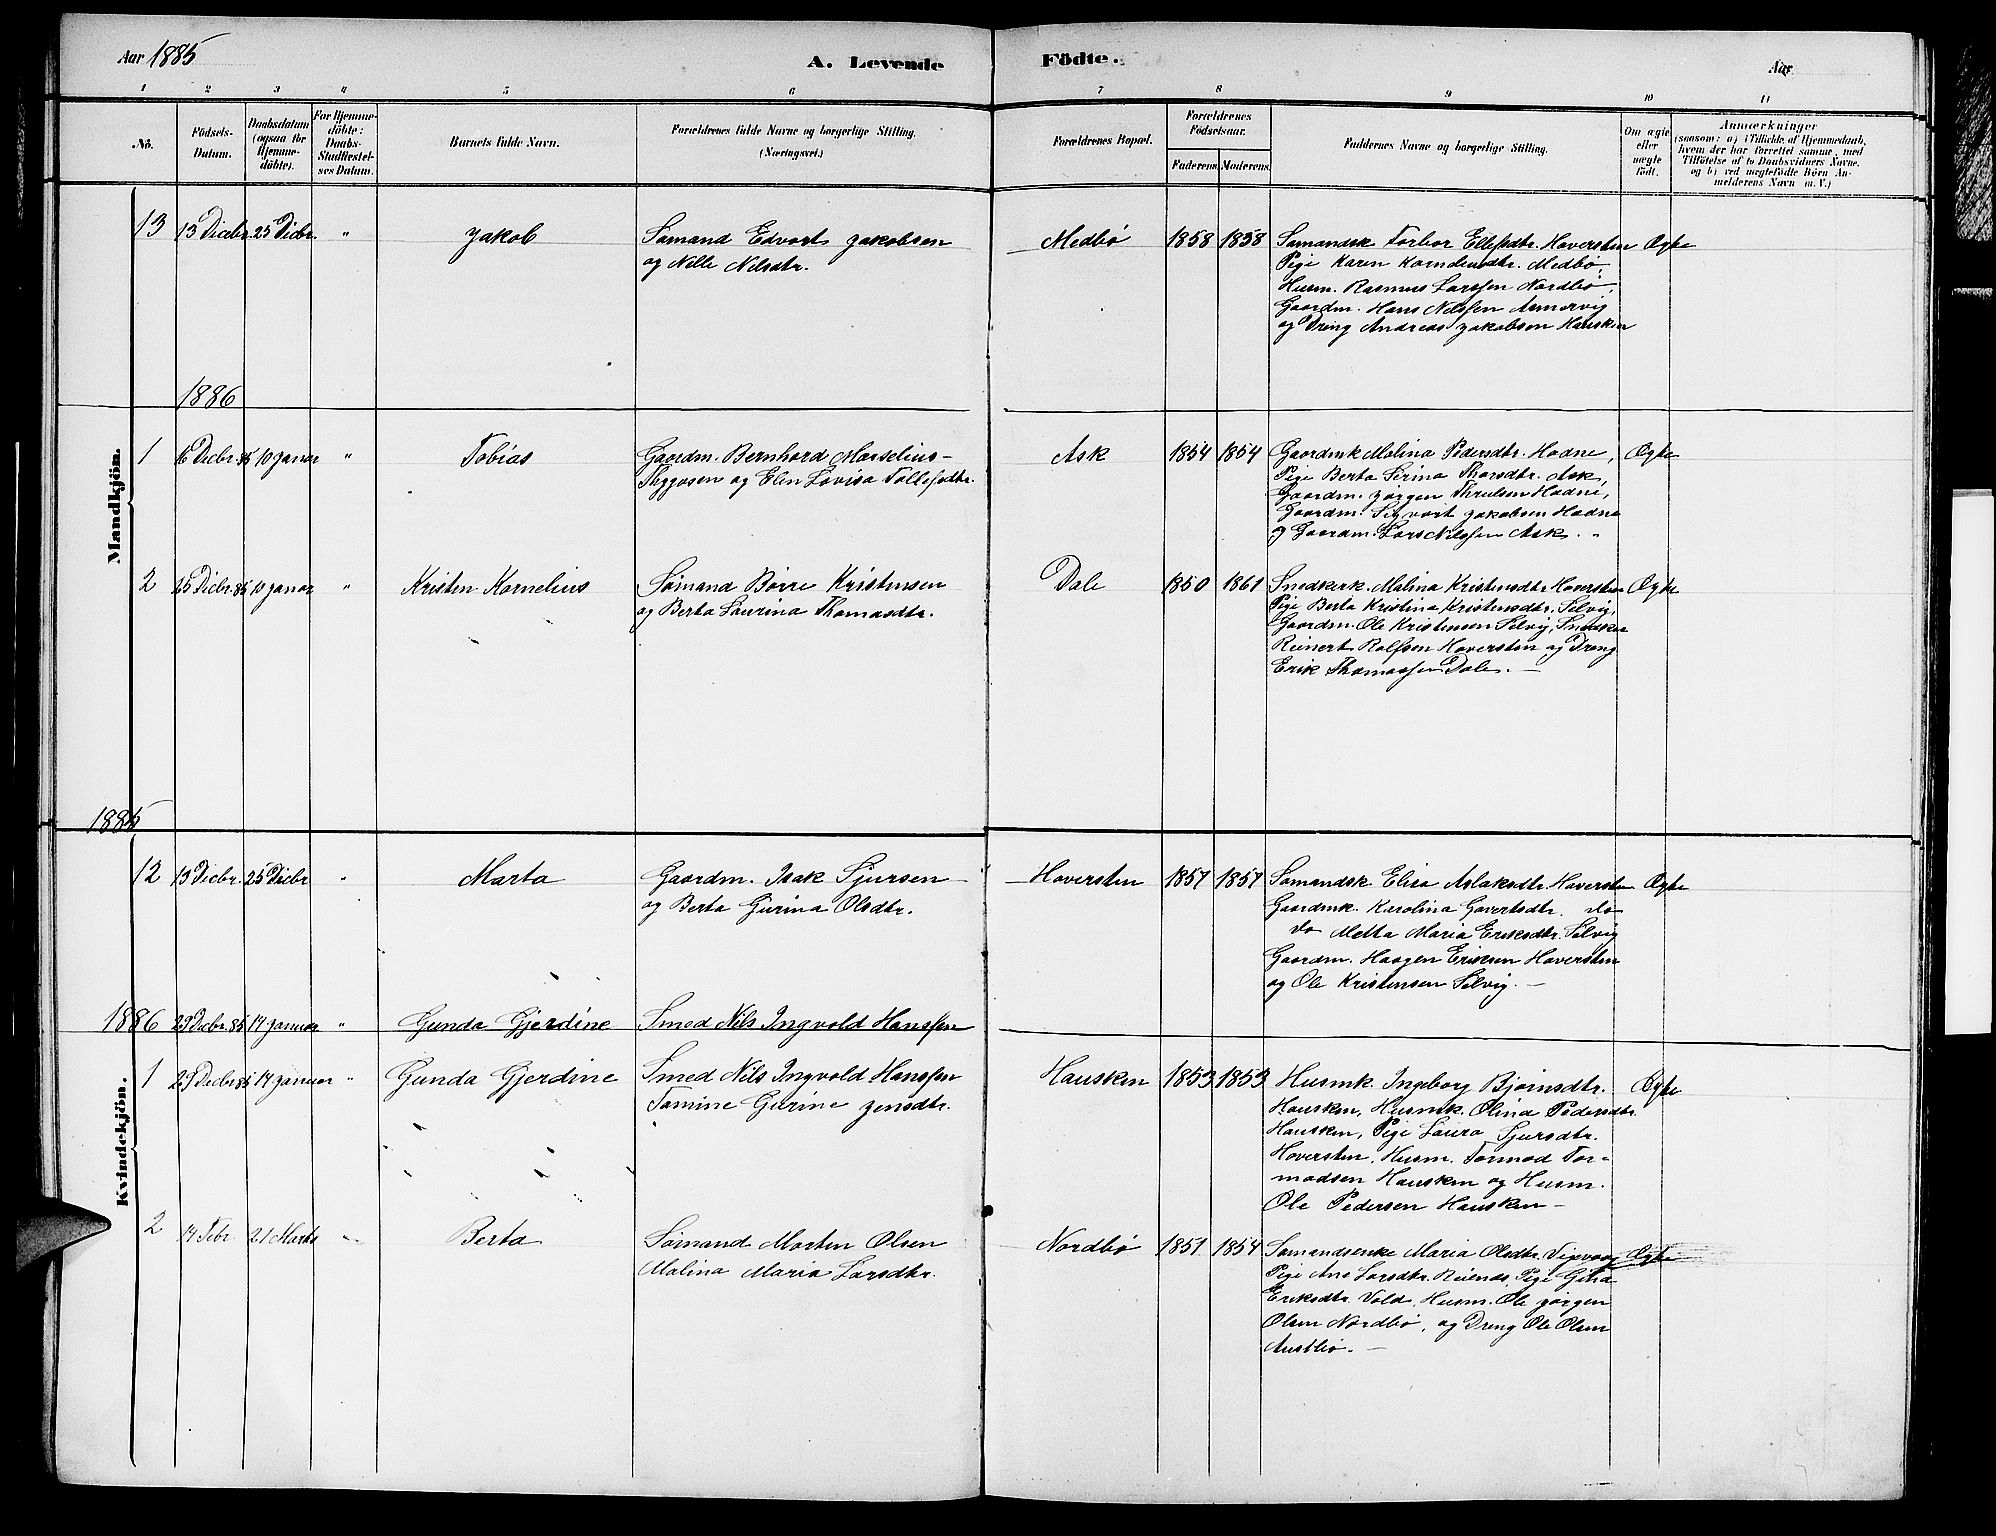 Aar 1885
A. Levende
Födte.
Aar
1 2 3 4 5 6 7 8 9 10 11
No.
Födsels-Datum.
Daabsdatum (ogsaa for Hjemme-döbte).
For Hjemme-döbte: Daabs-Stadfæstel-ses Datum.
Barnets fulde Navn.
Forældrenes fulde Navne og borgerlige Stilling. (Næringsvei.)
Forældrenes Bopæl.
Forældrenes Födselsaar.
Faderens Moderens
Faddernes Navne og borgerlige Stilling.
Om ægte eller uægte födt.
Anmærkninger
(saasom: a) i Tilfælde af Hjemmedaab,
hvem der har forrettet samme, med
Tilföielse af to Daabsvidners Navne,
og b) ved uægtefödte Börn An-
melderens Navn m. V.)
Mandkjön.
13 13 Decbr. 25 Decbr. " Jakob
Sømand Edvart Jakobsen
og Nille Nilsdtr.
Medbø 1858 1858
Sømandsk. Torbor Ellefsdtr. Haversten
Pige Karen Korneliusdtr. Medbø,
Husm. Rasmus Larssen Nordbø,
Gaardm. Hans Nilssen Asmervig
og Dreng Andreas Jakobsen Hausken
Ægte
1886
1 16 Decbr. 85 10 Januar " Tobias
Gaardm. Bernhard Marselius-
Thygesen og Elen Lovisa Tollefsdtr.
Ask 1854 1854
Gaardmk Malina Pedersdtr. Hodne,
Pige Berta Serina Thorsdtr. Ask,
Gaardm. Jørgen Thrulsen Hodne,
Gaardm. Sigvart Jakobsen Hodne
og Gaardm. Lars Nilssen Ask.
Ægte
2 25 Decbr. 85 10 Januar " Kristen Kornelius
Sømand Børre Kristensen
og Berta Laurina Thomasdtr.
Dale 1850 1861
Snedkerk. Malina Kristensdtr. Haversten
Pige Berta Kristina Kristensdtr. Selvig,
Gaardm. Ole Kristensen Selvig, Snedker
Reinert Rolfsen Haversten og Dreng
Erik Thomassen Dale. —
Ægte
1885
Kvindekjön.
12 13 Decbr. 25 Decbr " Marta
Gaardm. Isak Sjursen
og Berta Gurina Olsdtr.
Haversten 1857 1857
Sømandsk. Elisa Aslaksdtr. Haversten
Gaardmk. Karolina Govertsdtr. do
do Metta Maria Eriksdtr. Selvig
Gaardm. Haagen Eriksen Haversten
og Ole Kristensen Selvig. —
Ægte
1886 29 Decbr. 85 17 Januar " Gunda Gjerdine Smed Nils Ingvold Hanssen
1 29 Decbr 85 17 Januar " Gunda Gjerdine
Smed Nils Ingvold Hanssen
Tomine Gurine Jensdtr.
Hausken 1853 1853
Husmk. Ingeborg Bjørnsdtr.
Hausken, Husmk. Olina Pedersdtr.
Hausken, Pige Laura Sjursdtr.
Haversten, Husm. Tormod Tor-
modsen Hausken og Husm.
Ole Pedersen Hausken —
Ægte
2 14 Febr. 21 Marts " Berta
Sømand Morten Olsen
Malina Maria Larsdtr.
Nordbø 1851 1854
Sømandsenke Maria Olsdtr.
Pige Ane Larsdtr. Reienes, Pige Gitra
Eriksdtr. Vold, Husm. Ole Jørgen
Olsen Nordbø, og Dreng Ole Olsen
Austbø. —
Ægte